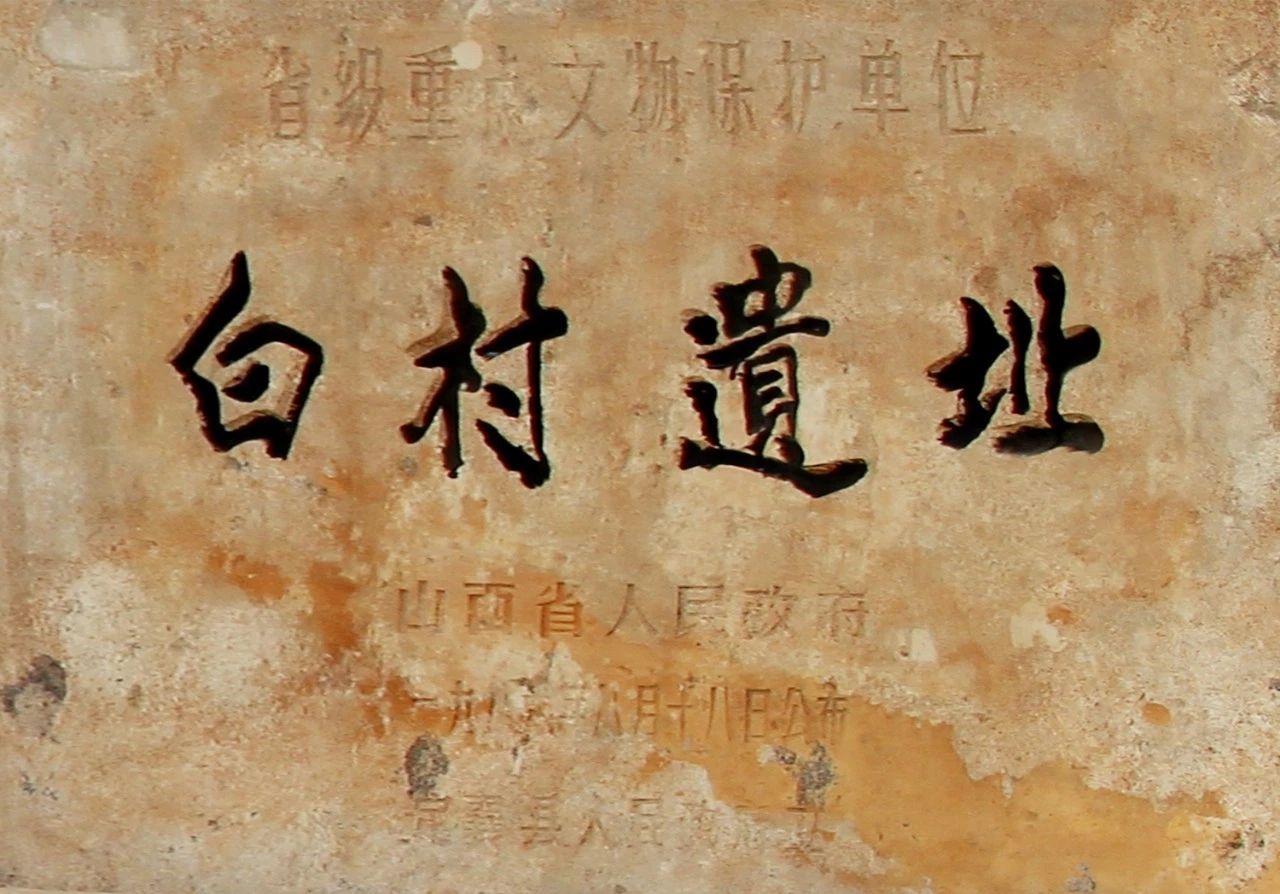 省级重点文物保护单位
白村遺址
山西省人民政府
一九八六年八月十八日公布
定襄县人民政府立